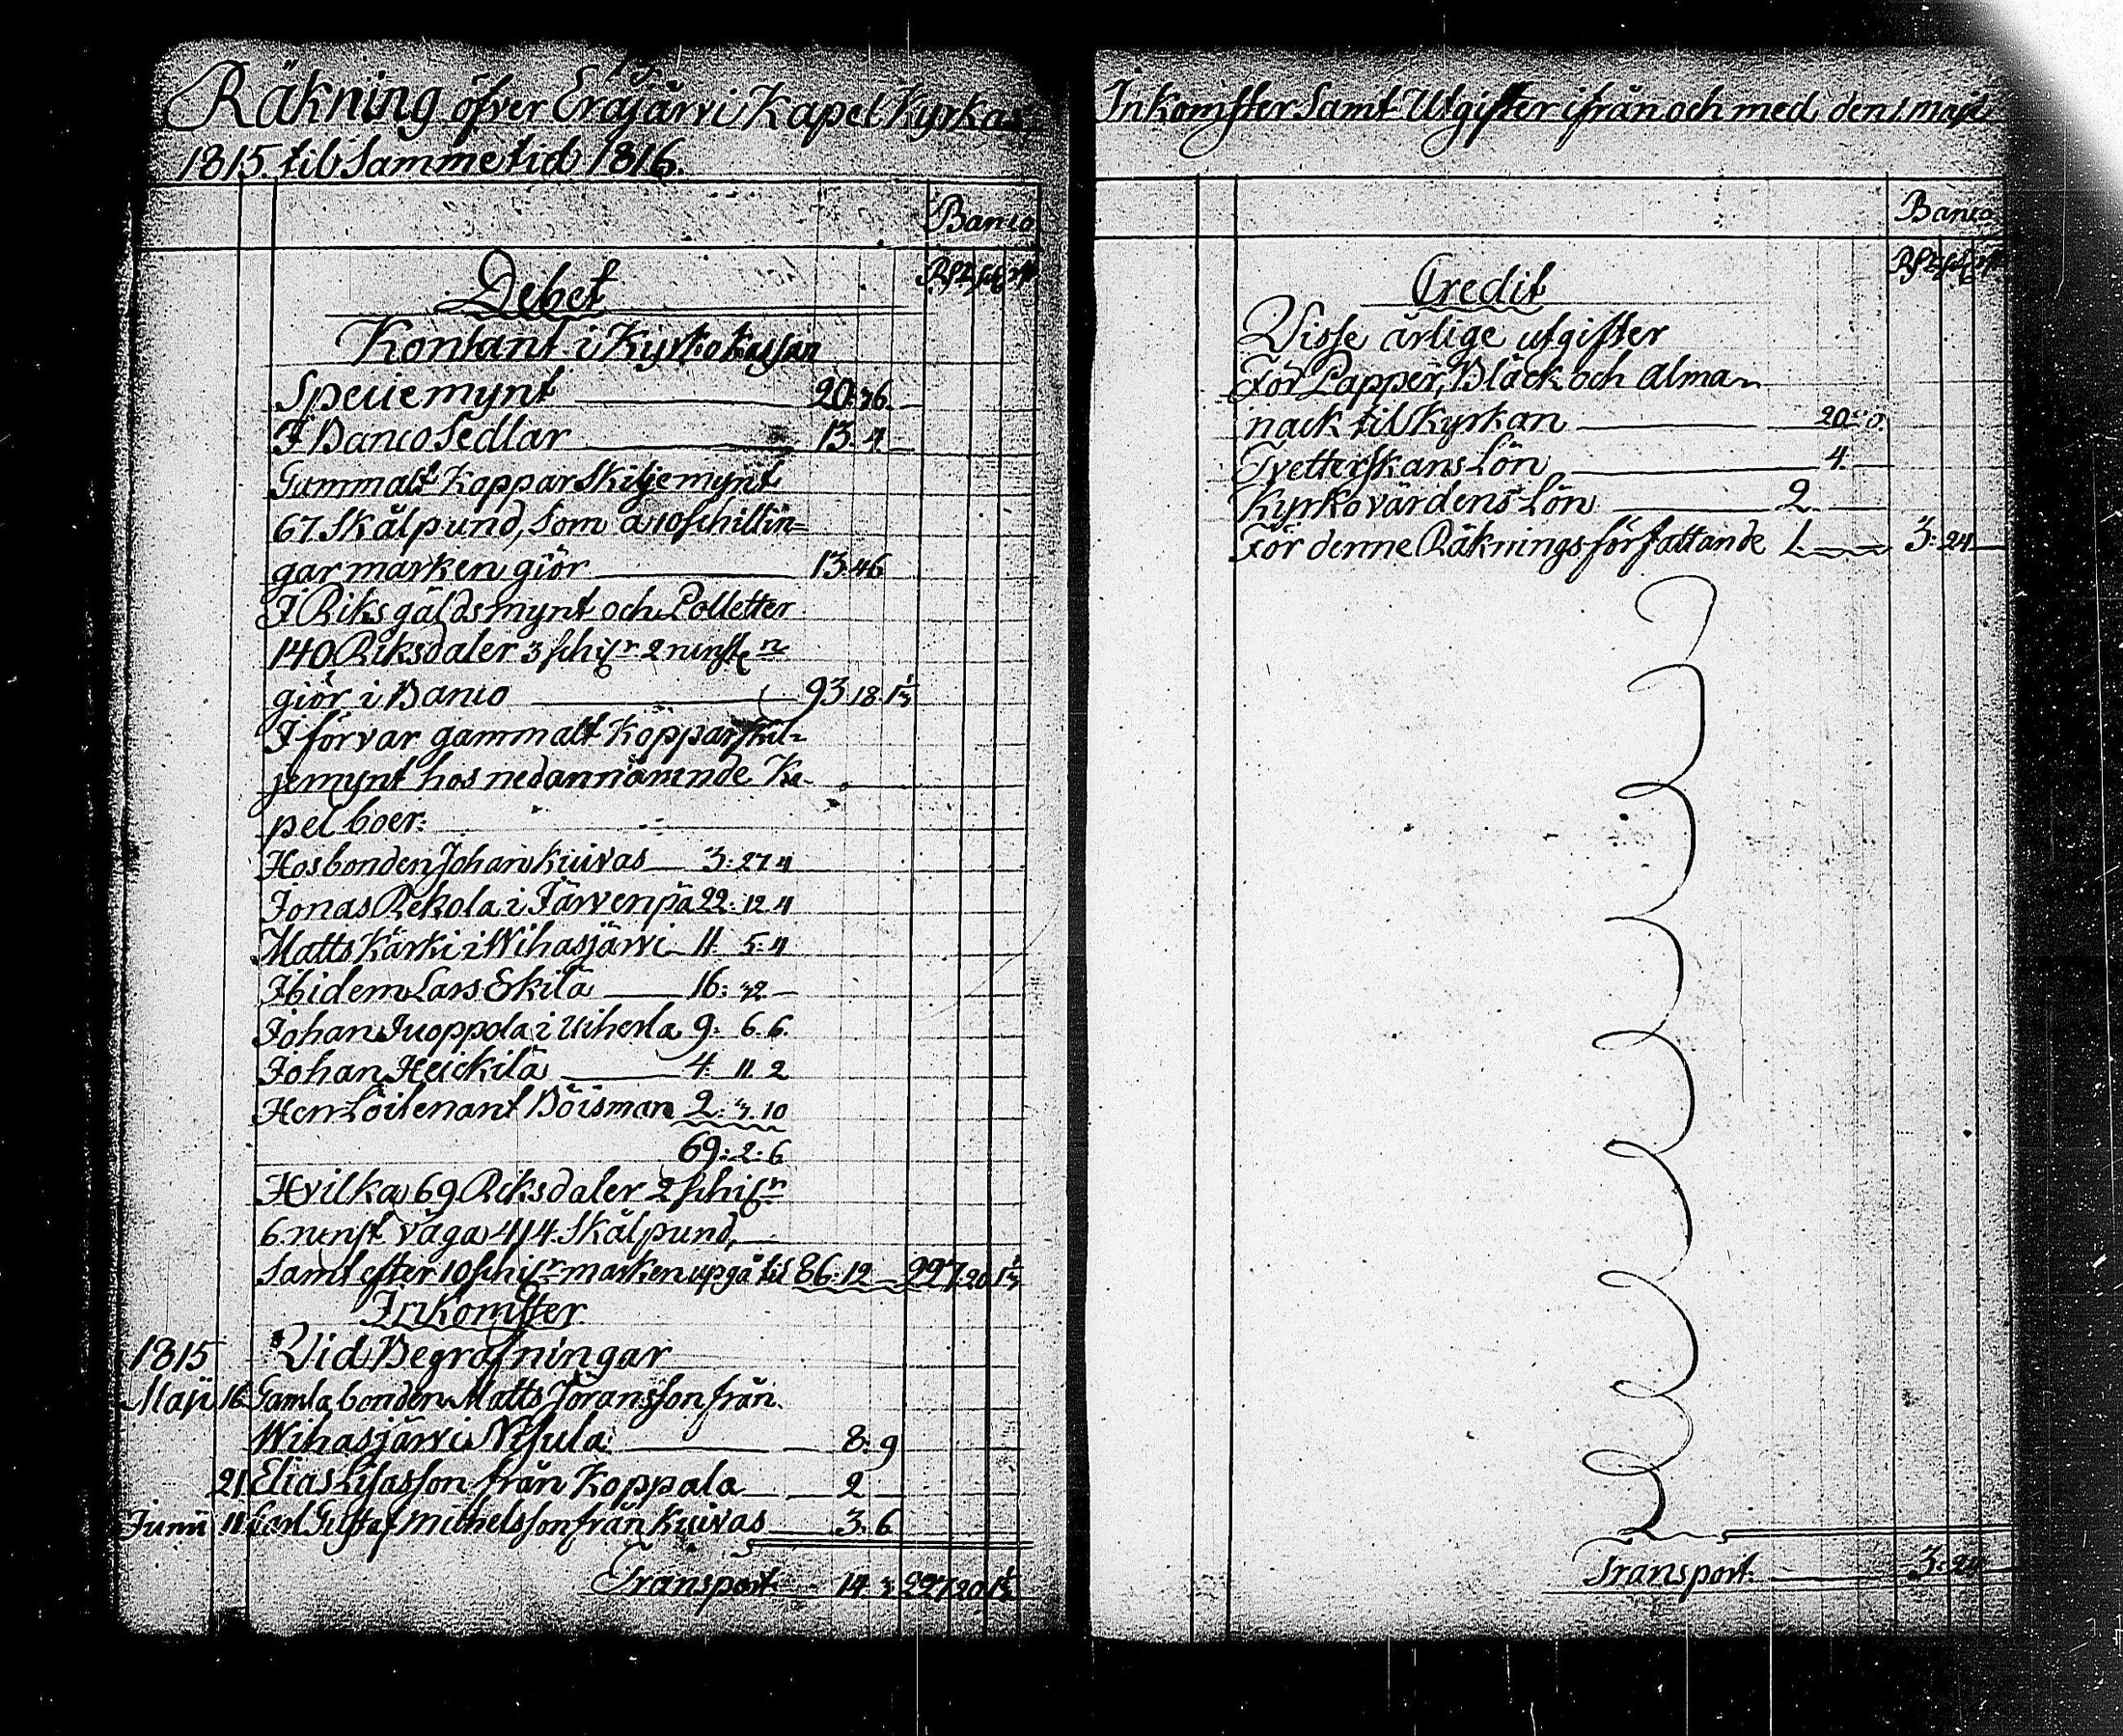 Räkning öfver Eräjärvi Kapel Kyrkas,
1815 til Samme tid 1816.
Banco
Debet
Kontant i Kyrko kassan
Speciemynt 20:36.
I Banco Sedlar 13.4.
Gummalt Koppar Skiljemynt
67 Skålpund, Som a 10 schillin=
gar marken giör 13.46
I Riksgäldsmynt och Polletter
140 Riksdaler 3 schilr 2 runsten
giör i Banco 93.18.1⅓
I förvar gammalt Koppar skil=
jemynt hos nedannämnde Ka-
pel boer:
Hos bonden Johan Kuivas 3:27.4
Jonas Rekola i Järvenpä 22:12.4
Matts Kärki i Wihasjärvi 11. 5:4
Ibidem Lars Eskilä 16:32
Johan Juoppola i Uiherla 9: 6.6.
Johan Heickilä 4: 11.2
Herr Löitenant Böisman 2:3.10
69:2:6
Hvilka 69 Riksdaler 2 schilr
6 runst väga 414 Skålpund,
Samt efter 10 schilr marken upgå til 86:12 227.20.1⅓
Inkomster
1815 Vid Begrafningar
Maji 16 Gamla bonden Matts Jöransson från
Wihasjärvi Nisula 8.9
21 Elias Lisasson från Koppala 2
Junii 11 Carl Gustaf Michelsson från Kuivas 3.6
Transport 14.3 227.20.1⅓
Inkomster Samt Utgifter ifrån och med den 1. Maji
Banco
Credit
Visse årlige utgifter
För Papper, Bläck och Alma=
nack til Kyrkan 20
Tvetterskans Lön 4.
Kyrkovärdens Lön 2.
För denne Räknings författande 1. 3:24
Transport 3:24